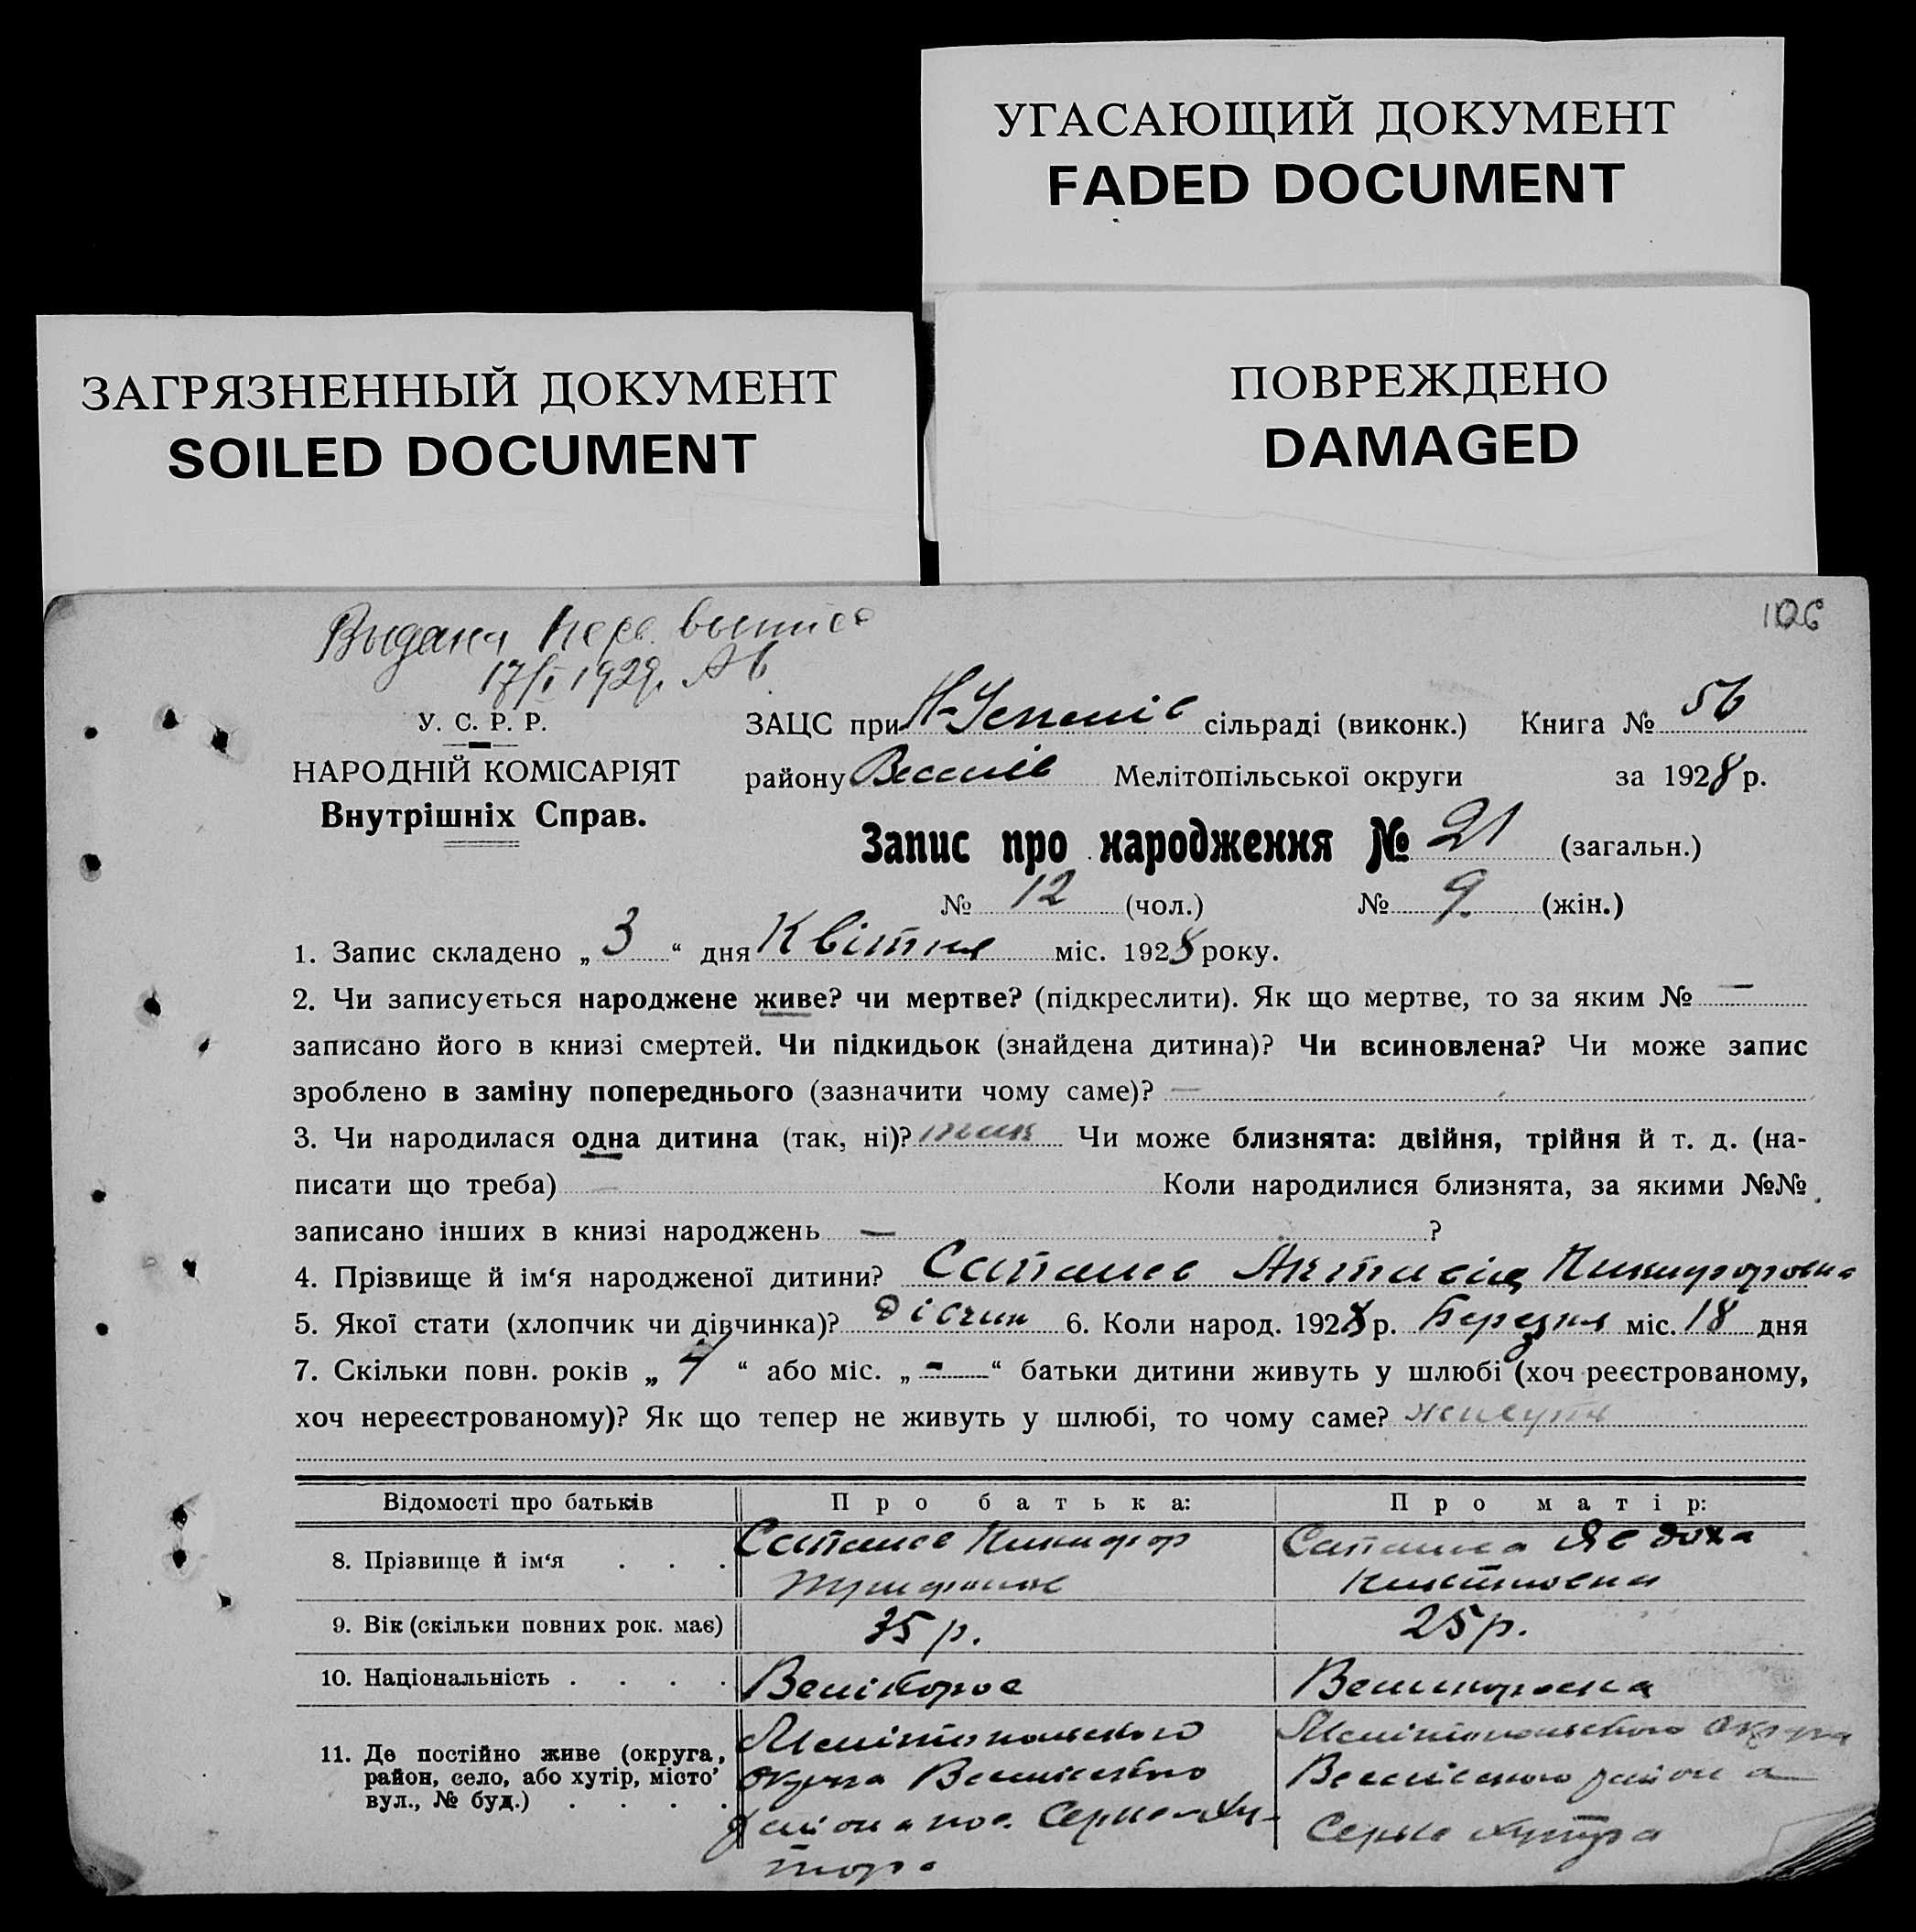 УГАСАЮЩИЙ ДОКУМЕНТ
FADED DOCUMENT
ЗАГРЯЗНЕННЫЙ ДОКУМЕНТ
SOILED DOCUMENT
ПОВРЕЖДЕНО
DAMAGED
106
17/I 1929г.
У. С. Р. Р.
НАРОДНІЙ КОМІСАРІЯТ
Внутрішніх Справ.
ЗАЦС при сільраді (виконк.) Книга № 56
району Веселів Мелітопільської округи за 1928 р.
Запис про народження № 21 (загальн.)
№ 12 (чол.) № 9. (жін.)
1. Запис складено „ 3 “ дня Квітня міс. 1928 року.
2. Чи записується народжене живе? чи мертве? (підкреслити). Як що мертве, то за яким № —
записано його в книзі смертей. Чи підкидьок (знайдена дитина)? Чи всиновлена? Чи може запис
зроблено в заміну попереднього (зазначити чому саме)? —
3. Чи народилася одна дитина (так, ні)? так Чи може близнята: двійня, трійня й т. д. (на-
писати що треба) — Коли народилися близнята, за якими №№
записано інших в книзі народжень — ?
4. Прізвище й ім‘я народженої дитини?
5. Якої стати (хлопчик чи дівчинка)? Дівчин 6. Коли народ. 1928 р. Березня міс. 18 дня
7. Скільки повн. років „ 4 “ або міс. „ - “ батьки дитини живуть у шлюбі (хоч реєстрованому,
хоч нереєстрованому)? Як що тепер не живуть у шлюбі, то чому саме? живуть
Відомості про батьків Про батька: Про матір:
8. Прізвище й ім‘я . . . Никифор Явдоха
9. Вік (скільки повних рок. має) 35 р. 25 р.
10. Національність . . . . Велікорос Великороска
11. Де постійно живе (округа, Мелітопольского Мелітопольского округа
район, село, або хутір, місто’ округа Веселівского Веселівского района
вул., № буд.) . . . . района пос.